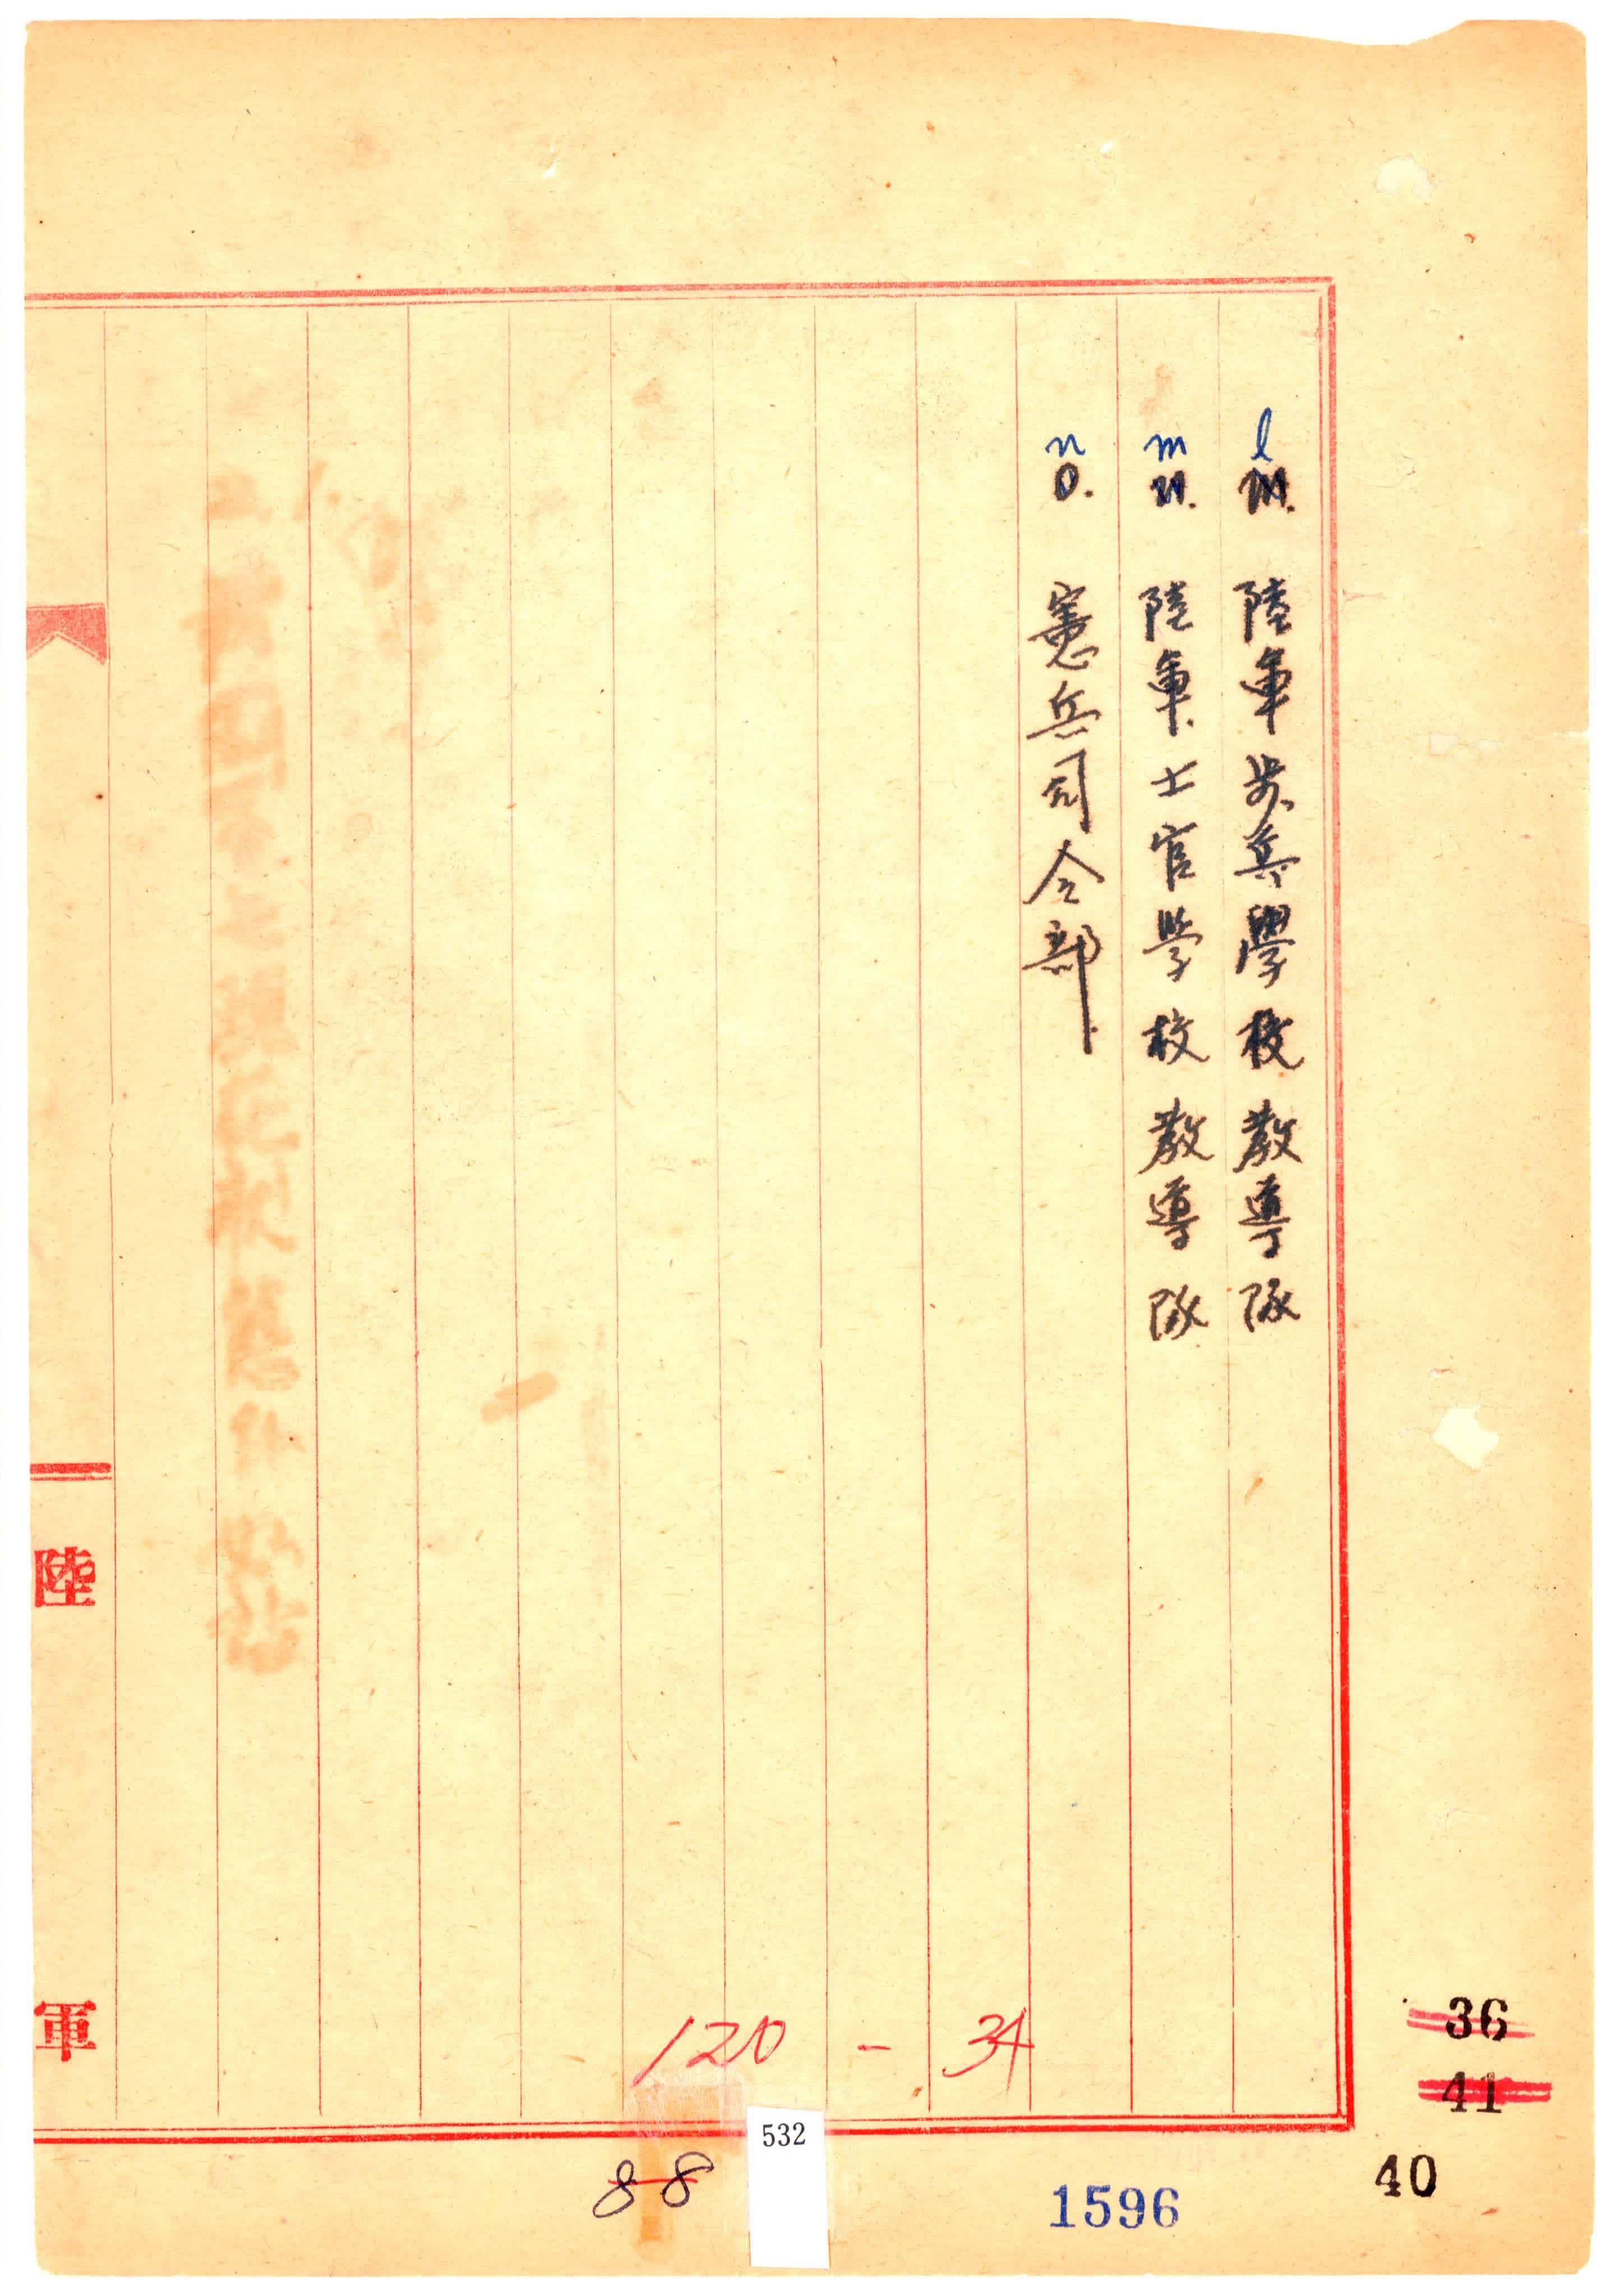 l
m. 陸軍步兵學校教導隊
m
n. 陸軍士官學校教導隊
n
o. 憲兵司令部
陸
軍
120 - 34
36
41
40
532
88
1596